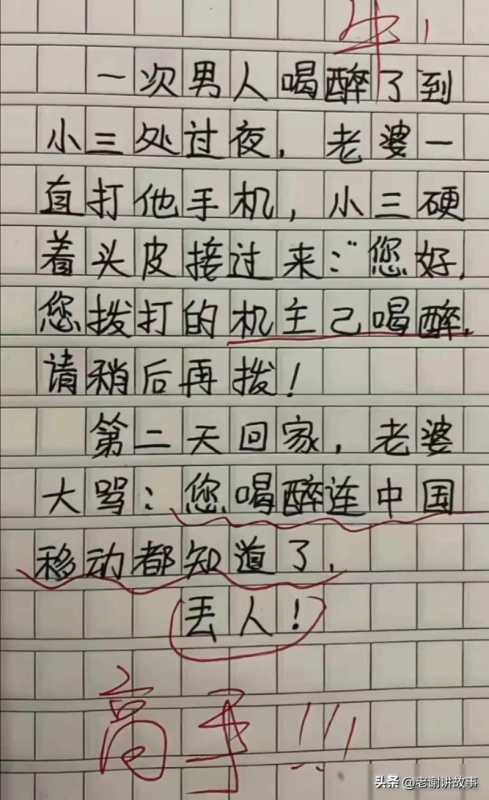 牛!
一次男人喝醉了到
小三处过夜，老婆一
直打他手机，小三硬
着头皮接过来:“您好，
您拨打的机主己喝醉，
请稍后再拨!
第二天回家，老婆
大骂:您喝醉连中国
移动都知道了，
丢人!
高手!!!
头条@老谢讲故事